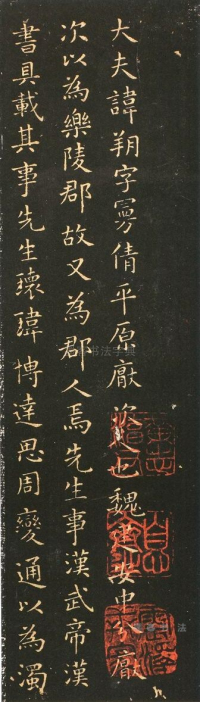 大夫諱朔字曼倩平原厭次人也魏建安中分厭
次以為樂陵郡故又為郡人焉先生事漢武帝漢
書具載其事先生瓌瑋博達思周變通以為濁